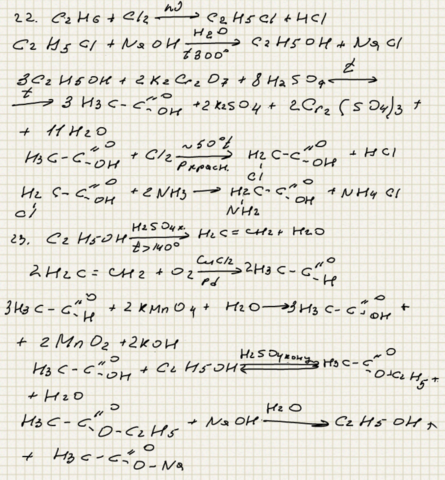 22. C2H6 + Cl2 —hν→ C2H5Cl + HCl
C2H5Cl + NaOH —H2O, t300°→ C2H5OH + NaCl
3C2H5OH + 2K2Cr2O7 + 8H2SO4 —t→
—t→ 3 H3C-C(=O)-OH + 2K2SO4 + 2Cr2(SO4)3 +
+ 11H2O
H3C-C(=O)-OH + Cl2 —~50°t, Pкрасн.→ H2C(Cl)-C(=O)-OH + HCl
H2C(Cl)-C(=O)-OH + 2NH3 → H2C(NH2)-C(=O)-OH + NH4Cl
23. C2H5OH —H2SO4к., t>140°→ H2C=CH2 + H2O
2H2C=CH2 + O2 —CuCl2, Pd→ 2H3C-C(=O)-H
3H3C-C(=O)-H + 2KMnO4 + H2O → 3H3C-C(=O)-OH +
+ 2MnO2 + 2KOH
H3C-C(=O)-OH + C2H5OH ⇌ H2SO4конц H3C-C(=O)-O-C2H5 +
+ H2O
H3C-C(=O)-O-C2H5 + NaOH —H2O→ C2H5OH +
+ H3C-C(=O)-O-Na